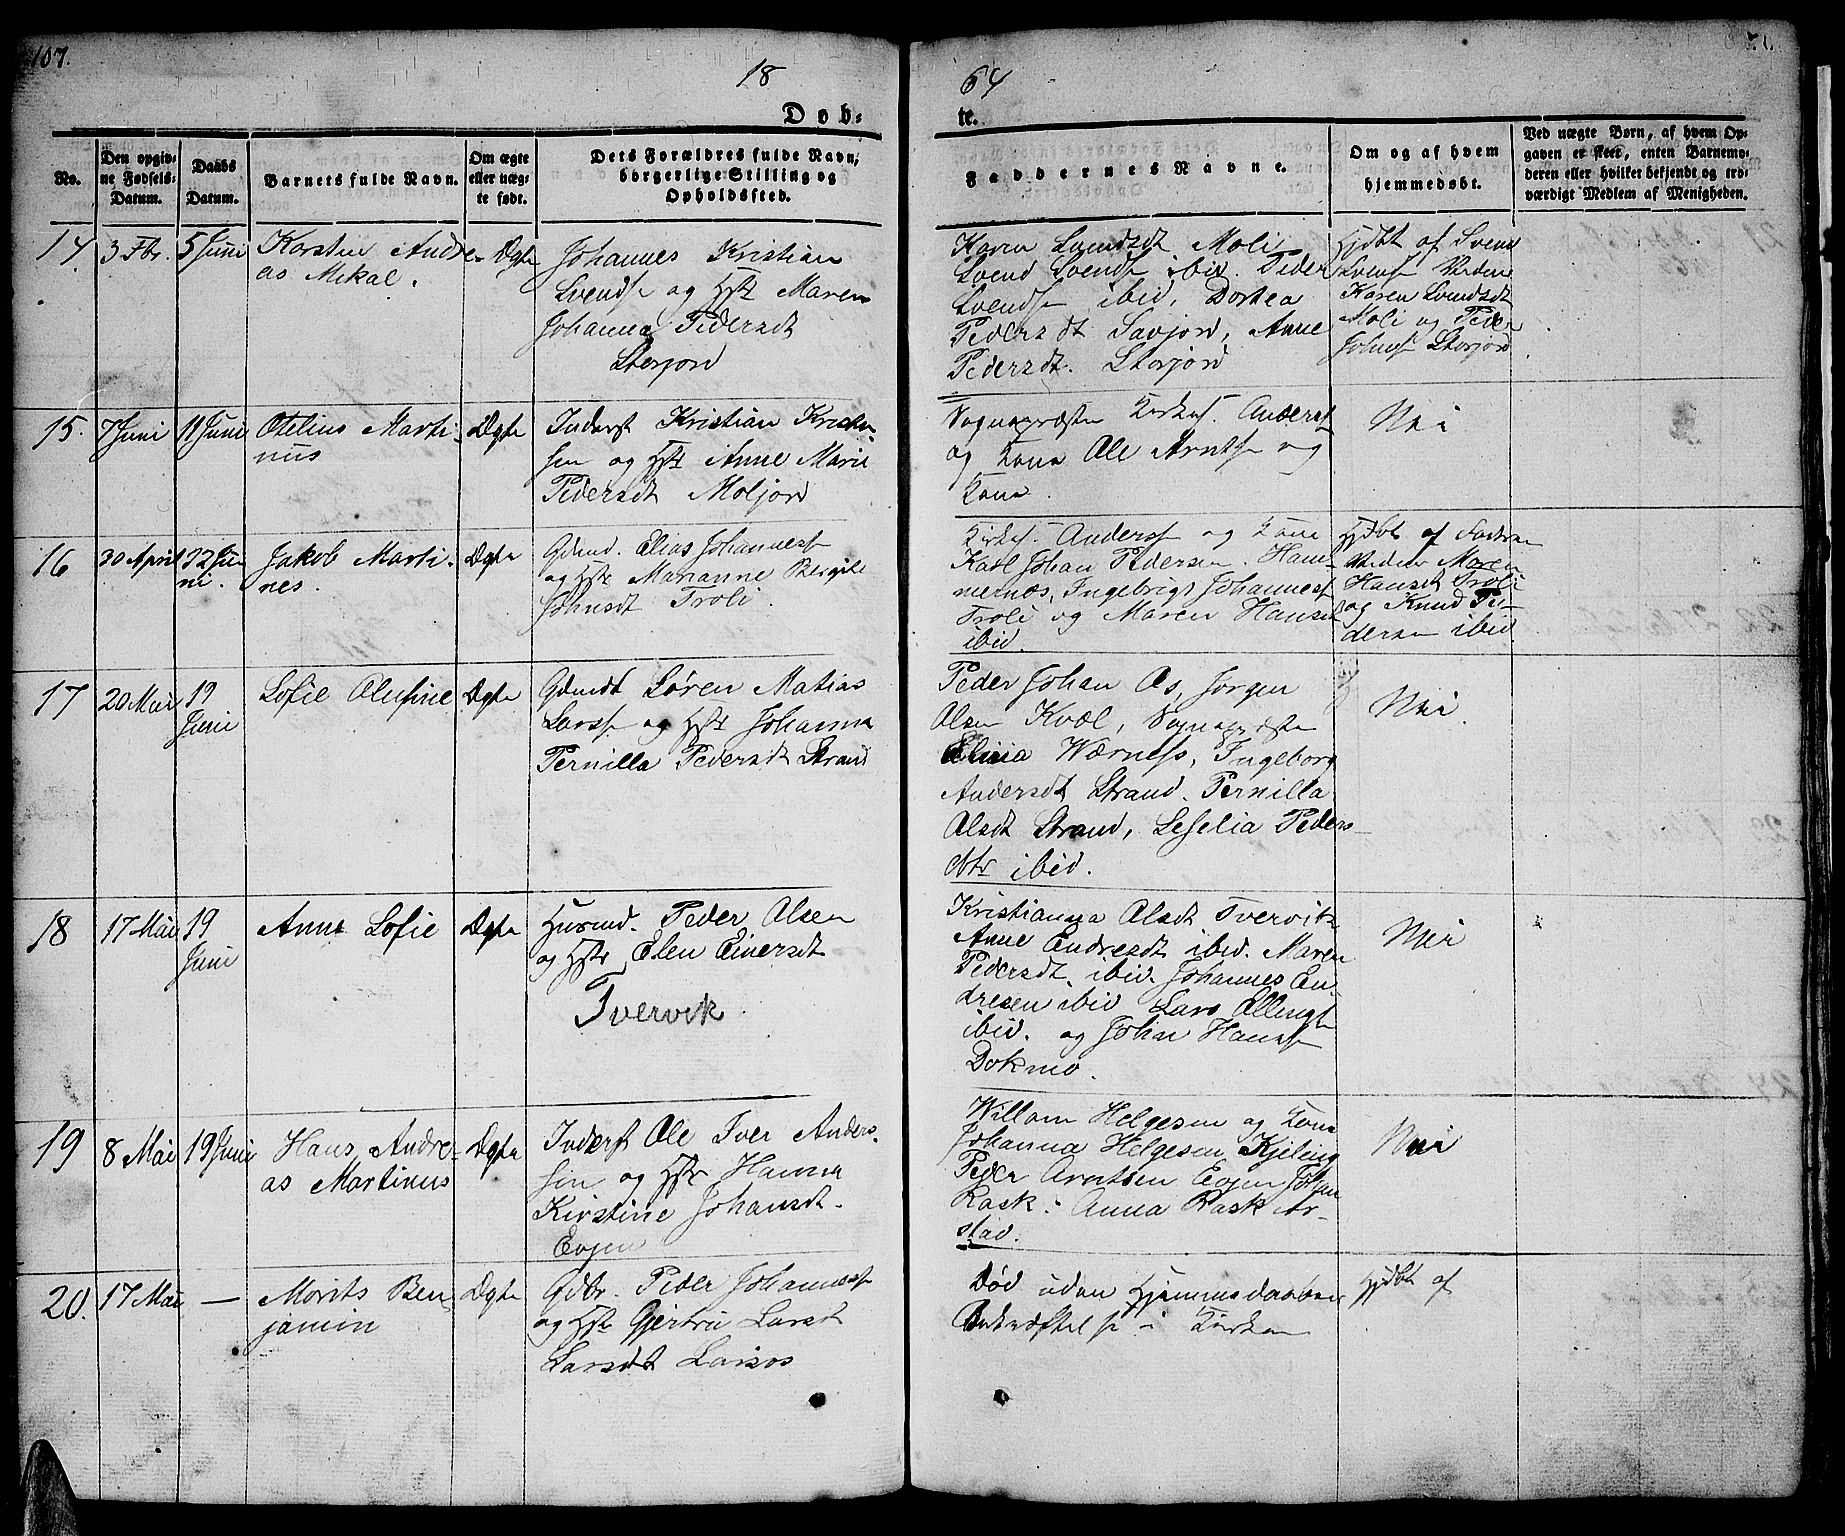 107.
18
64
Døb-
te.
No.
Den opgiv-
ne Fødsels-
Datum.
Daabs
Datum.
Barnets fulde Navn.
Om ægte
eller uæg-
te født.
Dets Forældres fulde Navn,
borgerlige Stilling og
Opholdssted.
Faddernes Navne.
Om og af hvem
hjemmedøbt.
Ved uægte Børn, af hvem Op-
gaven er skeet, enten Barnemo-
deren eller hvilket bekjendt og tro-
værdigt Medlem af Menigheden.
14.
3 Fbr.
5 Juni
Karstin Andre-
as Mekal.
Ægte
Johannes Kristian
Svends og Hst Maren
Johanna Pedersdt
Storjord
Karen Svendsdt Moli
Svend Svends ibid. Peder
Svends ibid, Dortea
Pedersdt Savjord, Anne
Pedersdt. Storjord
Hjdbt af Svend
Svends
Karen Svendsdt
Moli og Peder
Johns Storjord
15.
7 Juni
11 Juni
Otelius Marti-
nus
Ægte
Inderst Kristian Kristen-
sen og Hst Anne Marie
Pedersdt Moljord
Sognepræsten Kirkes. Anders
og Kone Ole Arnts og
Kone.
Nei
16
30 April
22 Ju-
ni.
Jakob Marti-
nes.
Ægte
Gdmd. Elias Johanness
og Hst Marianne Bergite
Johnsdt Troli.
Kirkes. Anders og Kone
Karl Johan Pedersen. Ham-
mernæs, Ingebrigt Johanness
Troli og Maren Hansd
ibid.
Hjdbt af Fadrene
Maren
Hansdt Troli
og Knud Pe-
dersen ibid
17
20 Mai
19
Juni
Sofie Olufine
Ægte
Gdmdt Søren Matias
Larss og Hst Johanna
Pernilla Pedersdt Strand
Peder Johan Os, Jørgen
Olsen Kvæl, Sognepræsten
Elisia Wærness, Ingeborg
Andersdt Strand. Pernilla
Olsdt Strand, Seselia Peders-
dtr ibid.
Nei.
18
17 Mai
19
Juni
Anne Sofie
Ægte
Husmd. Peder Olsen
og Hstr Elen Einersdt
Tvervik
Kristianna Olsdt Tvervik
Anne Endresdt ibid. Maren
Pedersdt. ibid. Johannes En-
dresen ibid Lars Ellings
ibid. og Johan Hanss
Dokmo.
Nei
19
8 Mai
19 Juni
Hans Andre-
as Martinus
Ægte
Inderst Ole Iver Anders-
sen og Hstr Hanna
Kirstine Johansdt.
Evjen
Willom Helgesen og Kone
Johanna Helgesen Kjeling
Peder Arntsen Evjen Johan
Rask. Anna Rask Ar-
stad.
Nei
20.
17 Mai
—
Morits Ben-
jamin
Ægte
Gdbr. Peder Johanness
og Hst Gjertru Larsdt
Larsdt Larsos
Død uden Hjemmedaabens
Bekræftelse i Kirken
Hjdbt af